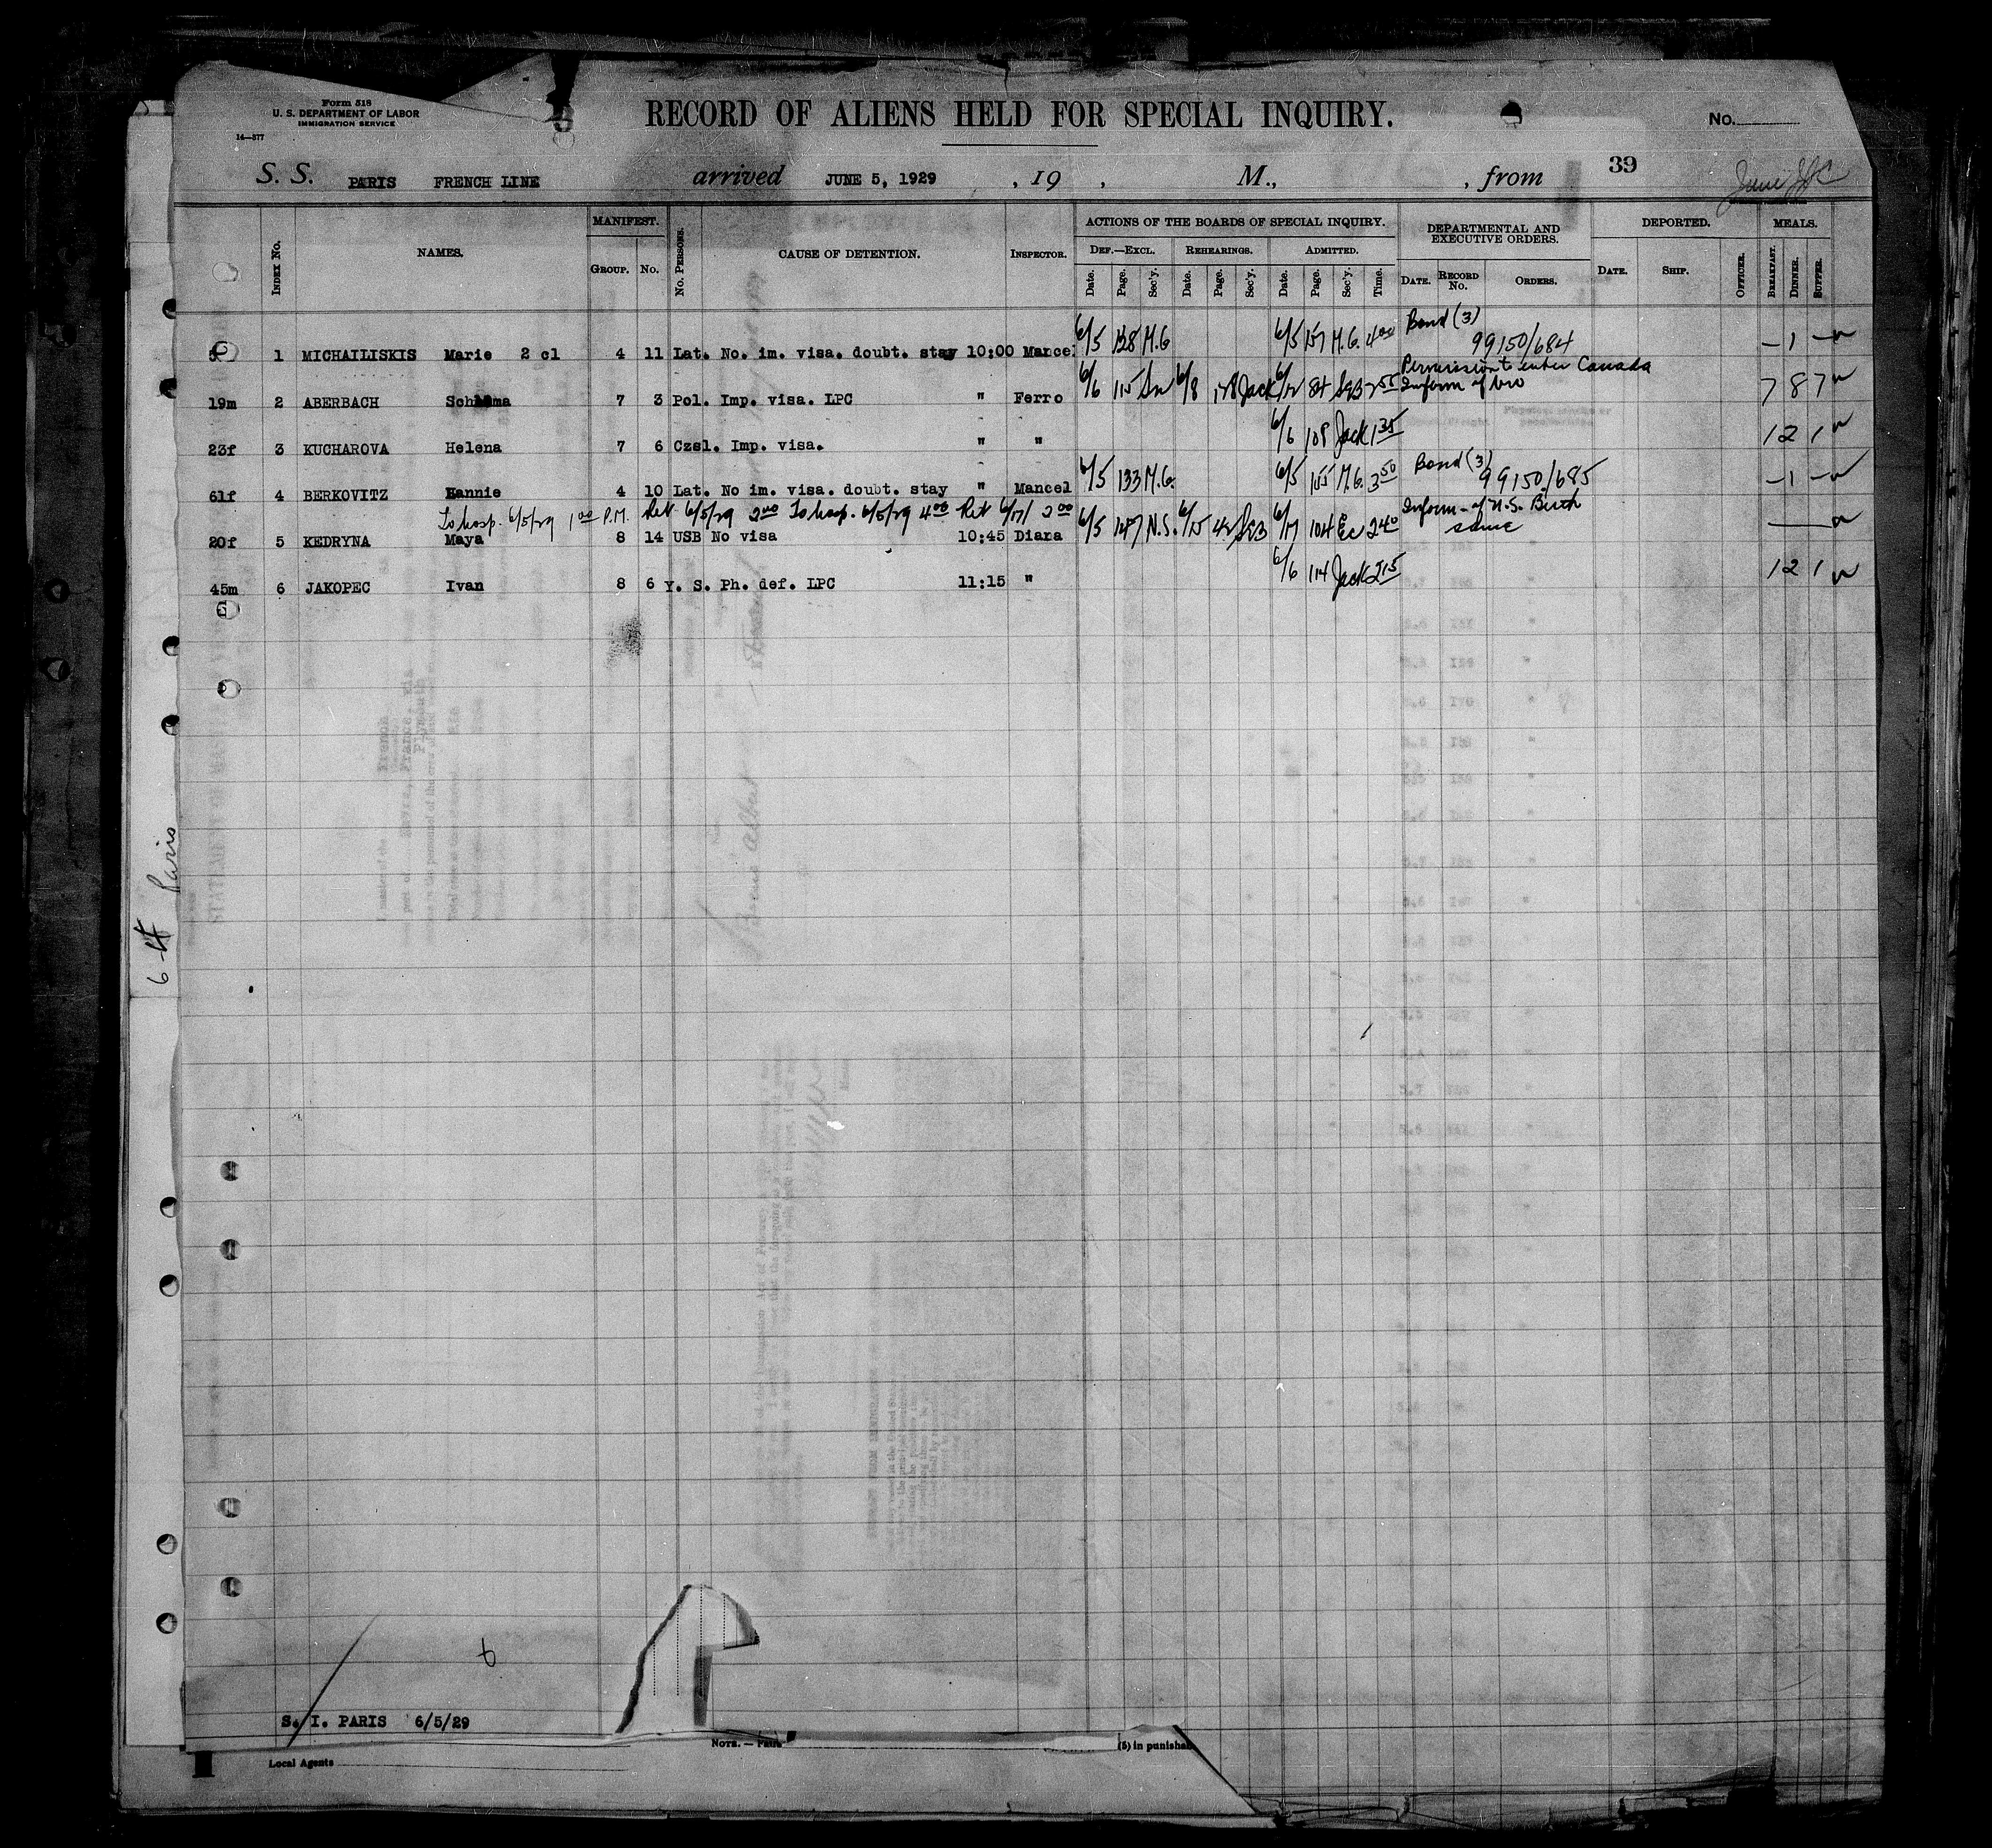 Form 518
U. S. DEPARTMENT OF LABOR
IMMIGRATION SERVICE
14—577
RECORD OF ALIENS HELD FOR SPECIAL INQUIRY.
No.
39
S. S. PARIS FRENCH LINE arrived JUNE 5, 1929 , 19 , M., , from
INDEX No. NAMES. MANIFEST. GROUP. No. No. PERSONS. CAUSE OF DETENTION. INSPECTOR. ACTIONS OF THE BOARDS OF SPECIAL INQUIRY. DEF.—EXCL. Date. Page. Sec'y. REHEARINGS. Date. Page. Sec'y. ADMITTED. Date. Page. Sec'y. Time. DEPARTMENTAL AND EXECUTIVE ORDERS. DATE. RECORD No. ORDERS. DEPORTED. DATE. SHIP. OFFICER. MEALS. BREAKFAST. DINNER. SUPPER.
1 MICHAILISKIS Marie 2 cl 4 11 Lat. No. im. visa. doubt. stay 10:00 Mancel 6/5 128 M.G 6/5 157 M.G. 4 00 Bond (3) 99150/684 — 1 —
19m 2 ABERBACH 7 3 Pol. Imp. visa. LPC " Ferro 6/6 115 6/8 178 Jack 6/12 84 SEB 2 55 Permission to enter Canada Inform of bro 7 8 7
23f 3 KUCHAROVA Helena 7 6 Czsl. Imp. visa. " " 6/6 108 Jack 1 35 1 2 1
61f 4 BERKOVITZ Hannie 4 10 Lat. No im. visa. doubt. stay " Mancel 6/5 133 M.G. 6/5 155 M.G. 3 50 Bond (3) 99150/685 — 1 —
To hosp. 6/5/29 1 00 P.M. Ret 6/5/29 2 00 To hosp. 6/5/29 4 00 Ret 6/17/ 2 00
20f 5 KEDRYNA Maya 8 14 USB No visa 10:45 Diara 6/5 147 N.S. 6/15 42 SEB 6/17 104 Ec 2 40 Inform - of U.S. Birth same
45m 6 JAKOPEC Ivan 8 6 Y. S. Ph. def. LPC 11:15 " 6/6 114 Jack 2 15 1 2 1
6 Paris
6
S. I. PARIS 6/5/29
Local Agents
NOTE. —
(5) in